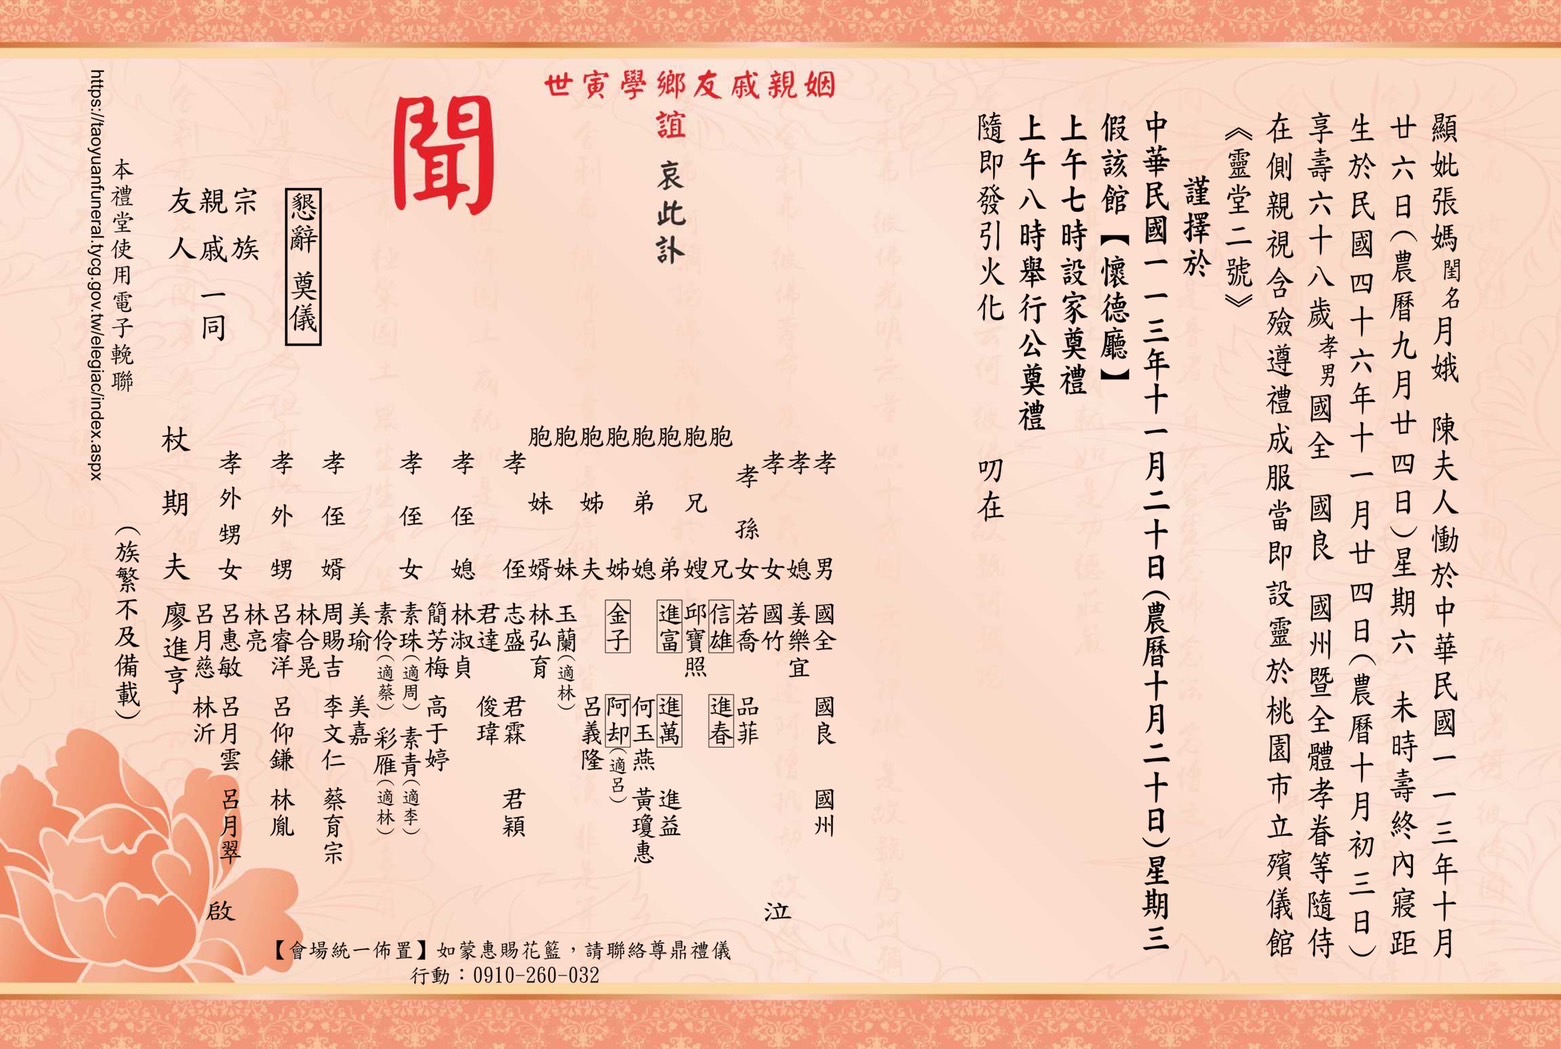 顯妣張媽閨名月娥　陳夫人慟於中華民國一一三年十月
廿六日(農曆九月廿四日)星期六　未時壽終內寢距
生於民國四十六年十一月廿四日(農曆十月初三日)
享壽六十八歲孝男國全　國良　國州暨全體孝眷等隨侍
在側親視含殮遵禮成服當即設靈於桃園市立殯儀館
《靈堂二號》
謹擇於
中華民國一一三年十一月二十日(農曆十月二十日)星期三
假該館【懷德廳】
上午七時設家奠禮
上午八時舉行公奠禮
隨即發引火化　叨在
姻親戚友鄉學寅世
誼　哀此訃
聞
孝男　國全　國良　國州
孝媳　姜樂宜
孝女　國竹
孝孫女　若喬　品菲
胞兄　信雄　進春
胞兄嫂　邱寶照
胞弟　進富　進萬　進益
胞弟媳　何玉燕　黃瓊惠
胞姊　金子　阿却(適呂)
胞姊夫　呂義隆
胞妹　玉蘭(適林)
胞妹婿　林弘育
孝侄　志盛　君霖　君穎
君達　俊瑋
孝侄媳　林淑貞
簡芳梅　高于婷
孝侄女　素珠(適周)　素青(適李)
素伶(適蔡)　彩雁(適林)
美瑜　美嘉
孝侄婿　周賜吉　李文仁　蔡育宗
林合晃
孝外甥　呂睿洋　呂仰鎌　林胤
林亮
孝外甥女　呂惠敏　呂月雲　呂月翠
呂月慈　林沂
杖期夫　廖進亨
泣
啟
懇辭　奠儀
宗族
親戚一同
友人
(族繁不及備載)
本禮堂使用電子輓聯
https://taoyuanfuneral.tycg.gov.tw/elegiac/index.aspx
【會場統一佈置】如蒙惠賜花籃，請聯絡尊鼎禮儀
行動：0910-260-032